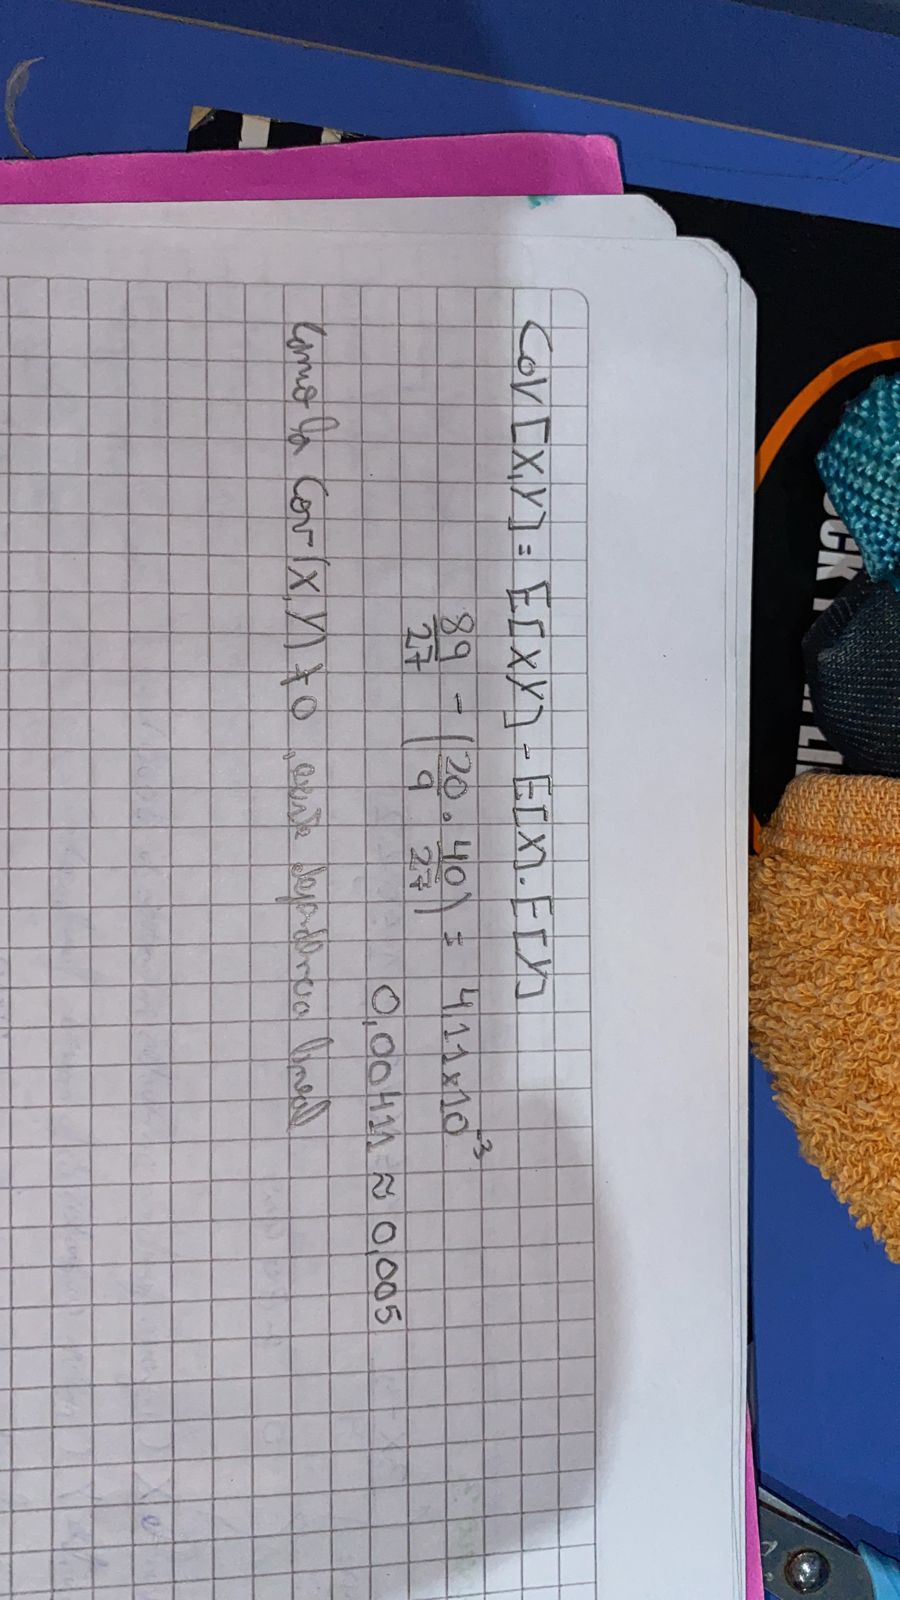 COV [X,Y] = E[XY] - E[X].E[Y]
89/27 - (20/9 . 40/27) = 4,11x10^-3
0,00411 ≈ 0,005
Como la Cov(X,Y) ≠ 0, existe dependencia lineal